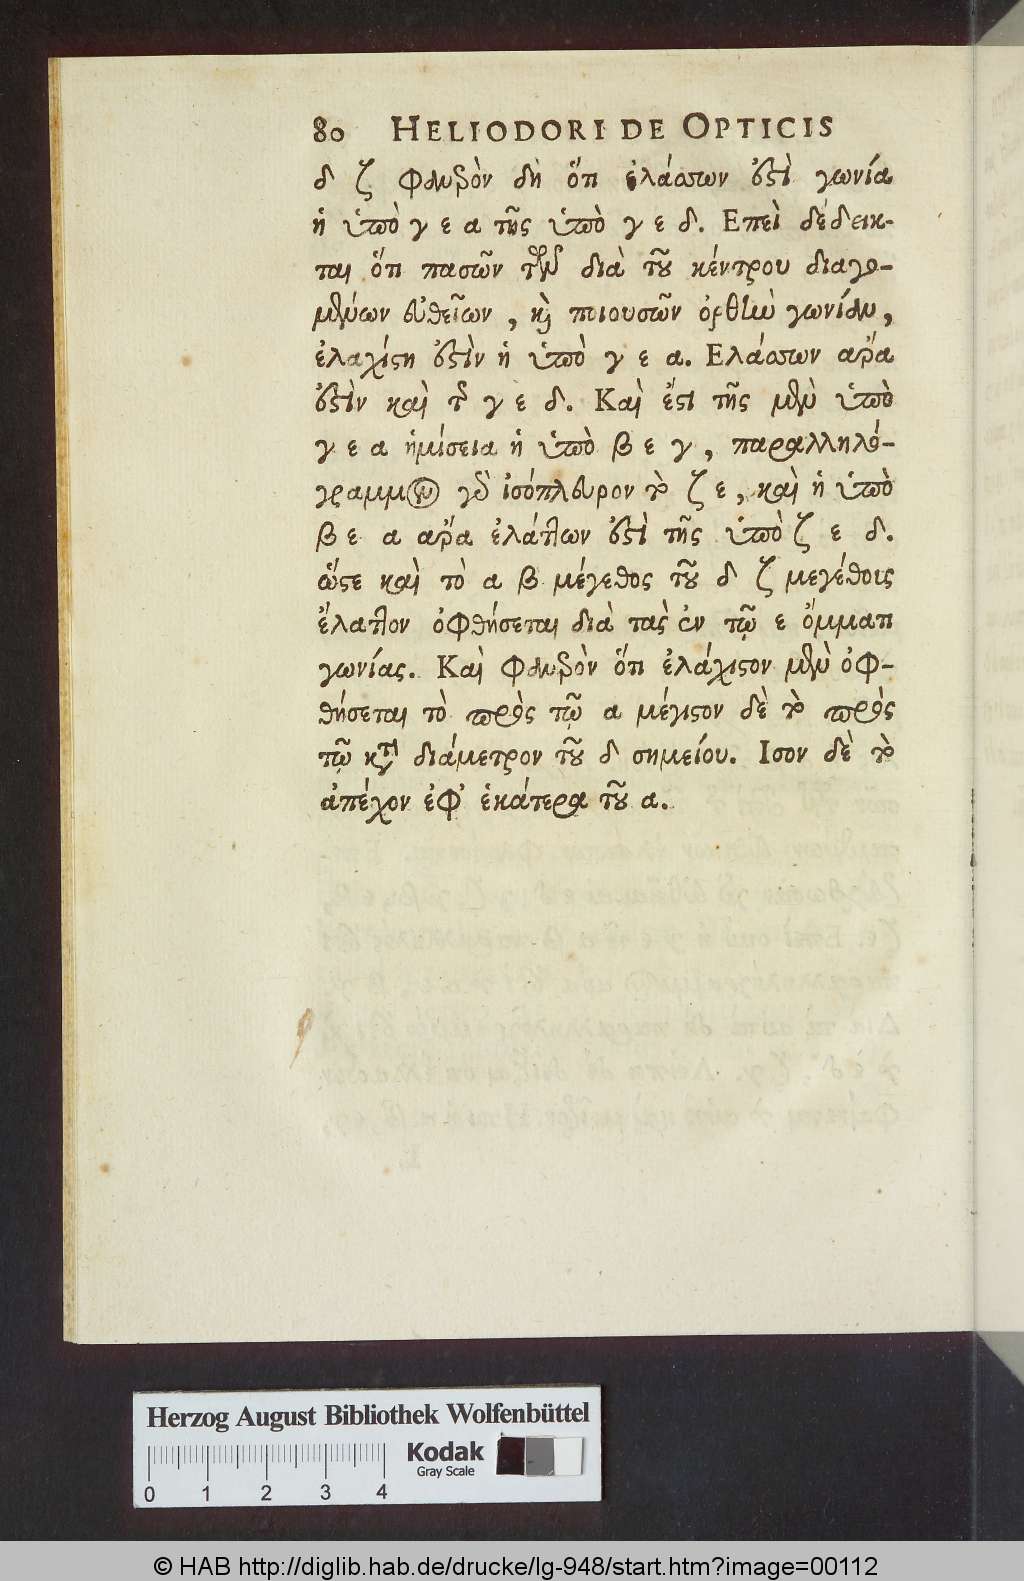 80 HELIODORI DE OPTICIS
δ ζ φανερὸν δὴ ὅτι ἐλάσσων ἐστὶ γωνία
ἡ ὑπὸ γ ε α τῆς ὑπὸ γ ε δ. Επεὶ δέδεικ-
ται ὅτι πασῶν τῶν διὰ τοῦ κέντρου διαγο-
μένων εὐθεῖων, καὶ ποιουσῶν ὀρθὴν γωνίαν,
ἐλαχίστη ἐστὶν ἡ ὑπὸ γ ε α. Ελάσσων αρα
ἐστὶν καὶ τῆς γ ε δ. Καὶ ἔστι τῆς μὲν ὑπὸ
γ ε α ἡμίσεια ἡ ὑπὸ β ε γ, παραλληλό-
γραμμον γὰρ ἰσόπλευρον τὸ ζ ε, καὶ ἡ ὑπὸ
β ε α αρα ἐλάττων ἐστὶ τῆς ὑπὸ ζ ε δ.
ὥστε καὶ τὸ α β μέγεθος τοῦ δ ζ μεγέθοις
ἔλαττον ὀφθήσεται διὰ τας ἐν τῷ ε ὄμματι
γωνίας. Καὶ φανερὸν ὅτι ἐλάχιστον μὲν ὀφ-
θήσεται τὸ πρὸς τῷ α μέγιστον δὲ τὸ πρὸς
τῷ κατὰ διάμετρον τοῦ δ σημείου. Ισον δὲ τὸ
ἀπέχον ἐφ' ἑκάτερα τοῦ α.
Herzog August Bibliothek Wolfenbüttel
Kodak
Gray Scale
0 1 2 3 4
© HAB http://diglib.hab.de/drucke/lg-948/start.htm?image=00112